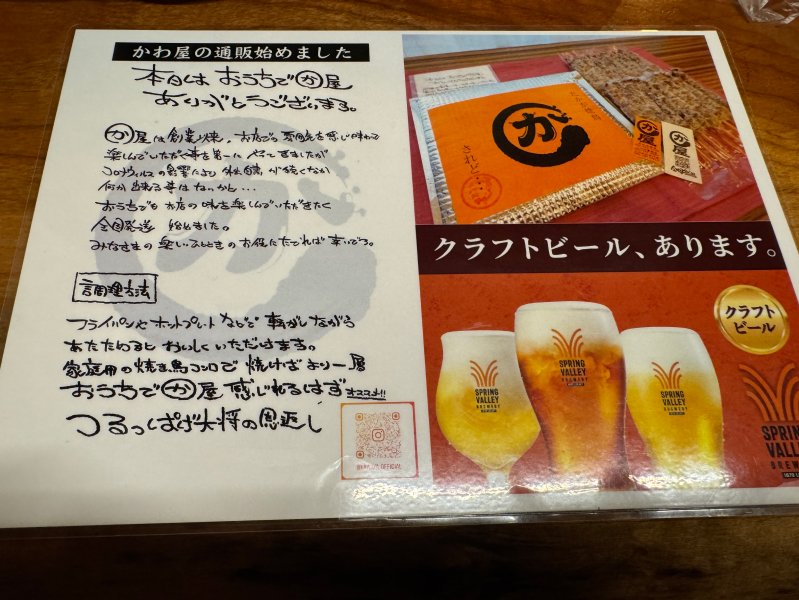 かわ屋の通販始めました
本日は おうちで か屋
ありがとうございます。
か屋は創業以来、お店での雰囲気を感じ味わって
楽しんでいただく事を第一に やって きましたが
コロナウィルスの影響により 外出自粛が続くなか
何か出来る事はないかと…
おうちでも お店の味を楽しんでいただきたく
全国発送 始めました。
みなさまの楽しいひとときのお役にたてれば幸いです。
調理方法
フライパンやホットプレートなどで 転がしながら
あたためると おいしくいただけます。
家庭用の焼き鳥コンロで 焼けば より一層
おうちで か屋 感じれるはず オススメ!!
つるっぱげ大将の恩返し
か
されど
か屋
か屋
クラフトビール、あります。
クラフト
ビール
SPRING
VALLEY
BREWERY
SPRING
VALLEY
BREWERY
SPRING
VALLEY
BREWERY
SPRING
VALLEY